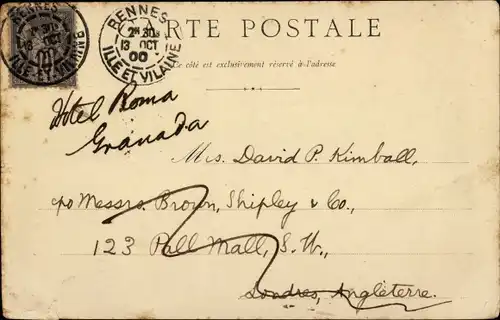 RENNES
ILLE ET VILAINE
RENNES
2E 30S
13 OCT
00
ILLE ET VILAINE
CARTE POSTALE
Ce côté est exclusivement réservé à l'adresse
Hotel Roma
Granada
Mrs. David P. Kimball,
c/o Messrs. Brown, Shipley & Co.,
123 Pall Mall, S.W.,
Londres, Angleterre.